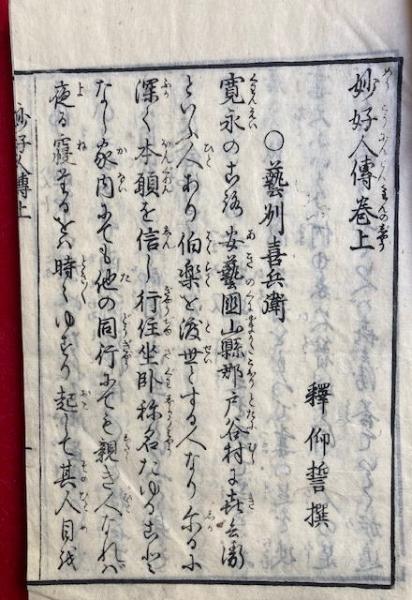 妙好人傳巻上
釋仰誓撰
〇藝州喜兵衛
寛永のころ安藝國山縣郡戸谷村に喜兵衛
といふ人あり伯樂を渡世とする人なりしかるに
深く本願を信し行住坐卧称名たゆることなし
なし家内にても他の同行にても親き人なれは
夜る寝するをは時々ゆすり起して其人目を
妙好人傳上